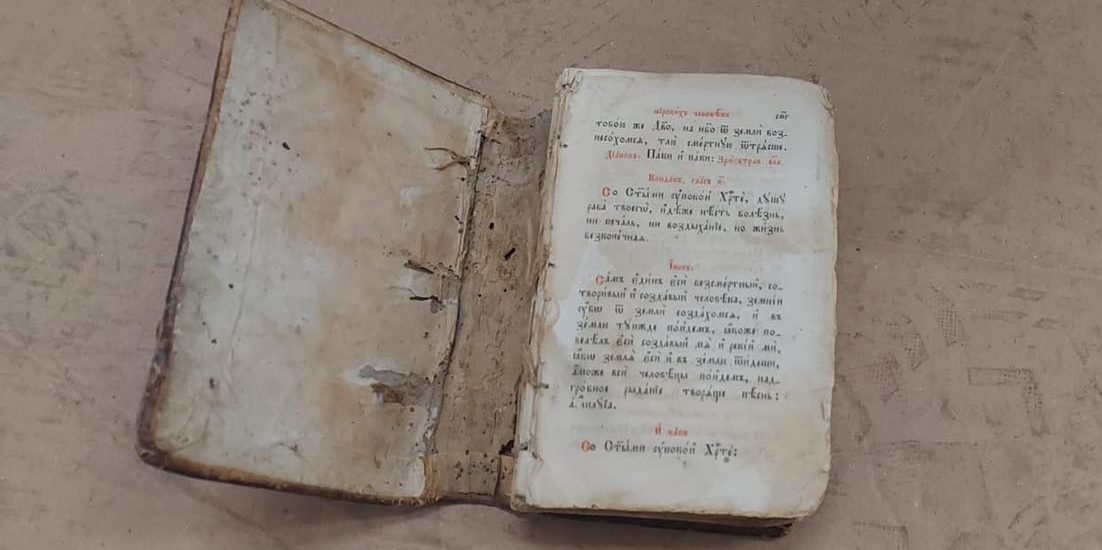 мірскихъ человѣкъ сог
тобою же Дв҃о, на нб҃о ѿ землѝ воз-
несо́хомсѧ, тлю̀ сме́ртнꙋю ѿтрѧ́сше.
Дїа́конъ. Па́ки и҆ па́ки:
Конда́къ, гла́съ и҃.
Со ст҃ы́ми ᲂу҆поко́й Хрⷭ҇тѐ, дꙋ́шꙋ
раба̀ твоегѡ̀, и҆дѣ́же нѣ́сть болѣ́знь,
ни печа́ль, ни воздыха́нїе, но жи́знь
безконе́чнаѧ.
І҆́косъ.
Са́мъ є҆ди́нъ є҆сѝ безсме́ртный, со-
твори́вый и҆ созда́вый человѣ́ка, земні́и
ᲂу҆̀бѡ ѿ землѝ созда́хомсѧ, и҆ въ
зе́млю тꙋ́южде по́йдемъ, ꙗ҆́коже по-
велѣ́лъ є҆сѝ созда́вый мѧ̀ и҆ реки́й мѝ,
ꙗ҆́кѡ землѧ̀ є҆сѝ и҆ въ зе́млю ѿи́деши,
а҆́може всѝ человѣ́цы по́йдемъ, над-
гро́бное рыда́нїе творѧ́ще пѣ́снь:
а҆ллилꙋ́їа.
И҆ па́ки
Со ст҃ы́ми ᲂу҆поко́й Хрⷭ҇тѐ: